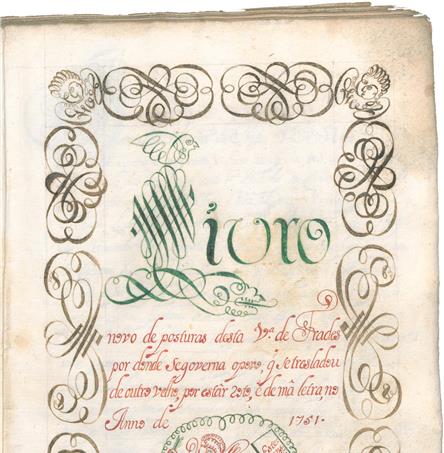 Livro
novo de posturas desta Vª. de Frades
por donde Segoverna opovo, q̃ Setrasladou
de outro velho, por estár Roto, e de mâ letra, no
Anno de 1751.